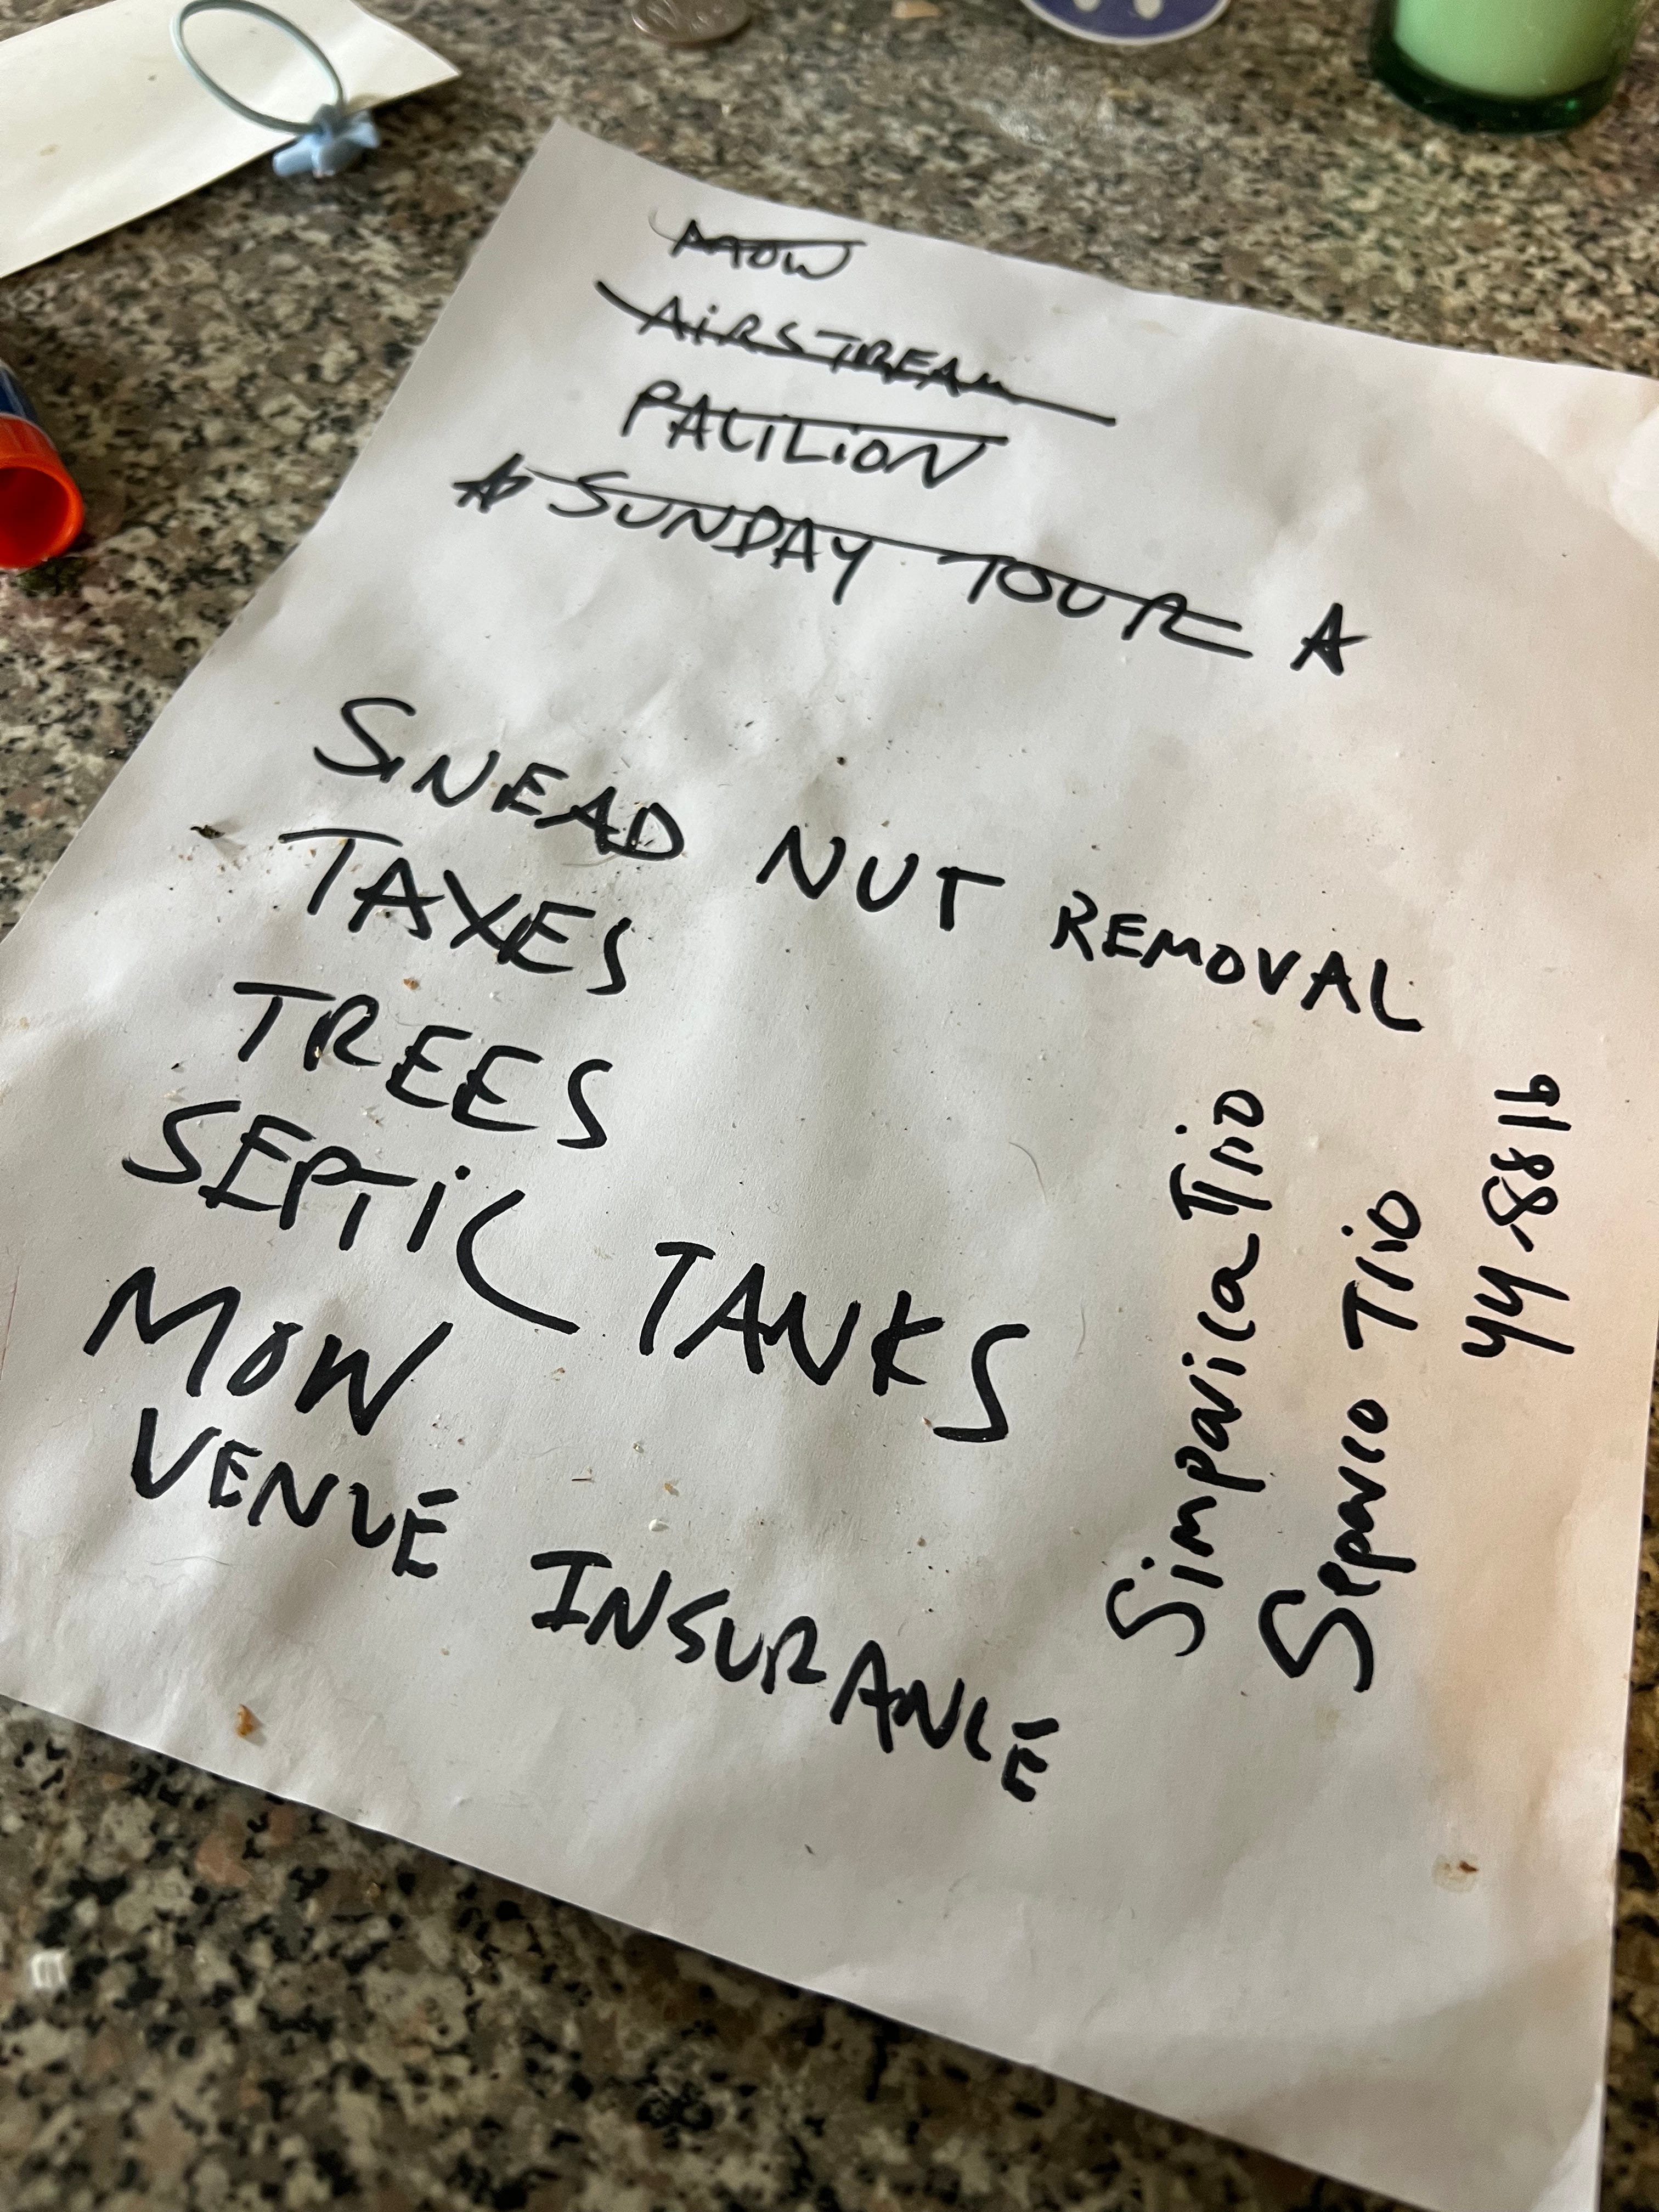 MOW
AIRSTREAM
PAVILION
SUNDAY TOUR
SINEAD NUT REMOVAL
TAXES
TREES
SEPTIC TANKS
MOW
VENUE INSURANCE
Simparica Trio
Sepavio Trio
44-881b